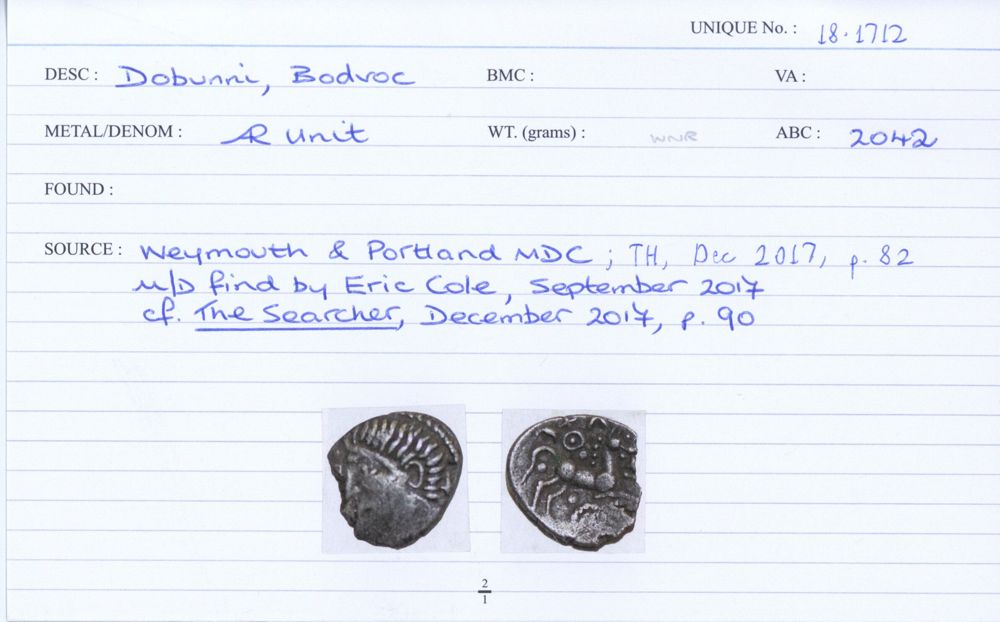 UNIQUE No. : 18.1712
DESC : Dobunni, Bodvoc BMC : VA :
METAL/DENOM : AR unit WT. (grams) : WNR ABC : 2042
FOUND :
SOURCE : Weymouth & Portland MDC ; TH, Dec 2017, p. 82
M/D find by Eric Cole, September 2017
cf. The Searcher, December 2017, p. 90
2
1